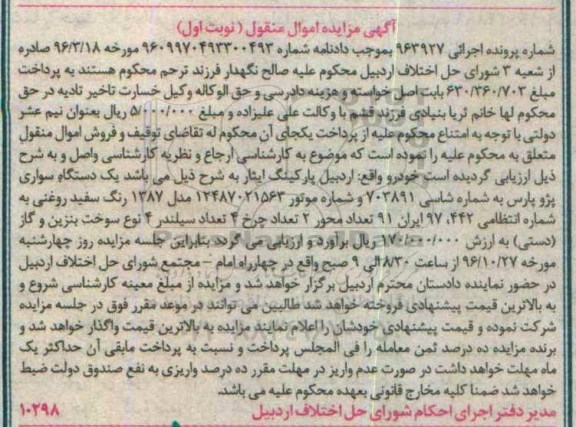 آگهی مزایده اموال منقول ( نوبت اول)
شماره پرونده اجرائی ۹۶۳۹۲۷ بموجب دادنامه شماره ۹۶۰۹۹۷۰۴۹۳۳۰۰۴۹۳ مورخه ۹۶/۳/۱۸ صادره
از شعبه ۳ شورای حل اختلاف اردبیل محکوم علیه صالح نگهدار فرزند ترحم محکوم هستند به پرداخت
مبلغ ۶۳۰/۳۶۰/۷۰۳ بابت اصل خواسته و هزینه دادرسی و حق الوکاله وکیل خسارت تاخیر تادیه در حق
محکوم لها خانم ثریا بنیادی فرزند قشم با وکالت علی علیزاده و مبلغ ۵/۰۰۰/۰۰۰ ریال بعنوان نیم عشر
دولتی با توجه به امتناع محکوم علیه از پرداخت یکجای آن محکوم له تقاضای توقیف و فروش اموال منقول
متعلق به محکوم علیه را نموده است که موضوع به کارشناسی ارجاع و نظریه کارشناسی واصل و به شرح
ذیل ارزیابی گردیده است خودرو واقع: اردبیل پارکینگ ایثار به شرح ذیل می باشد یک دستگاه سواری
پژو پارس به شماره شاسی ۷۰۳۸۹۱ و شماره موتور ۱۲۴۸۷۰۲۱۵۶۳ مدل ۱۳۸۷ رنگ سفید روغنی به
شماره انتظامی ۴۴۲، ۹۷ ایران ۹۱ تعداد محور ۲ تعداد چرخ ۴ تعداد سیلندر ۴ نوع سوخت بنزین و گاز
(دستی) به ارزش ۱۷۰/۰۰۰/۰۰۰ ریال برآورد و ارزیابی می گردد بنابراین جلسه مزایده روز چهارشنبه
مورخه ۹۶/۱۰/۲۷ از ساعت ۸/۳۰ الی ۹ صبح واقع در چهارراه امام – مجتمع شورای حل اختلاف اردبیل
در حضور نماینده دادستان محترم اردبیل برگزار خواهد شد و مزایده از مبلغ معینه کارشناسی شروع و
به بالاترین قیمت پیشنهادی فروخته خواهد شد طالبین می توانند در موعد مقرر فوق در جلسه مزایده
شرکت نموده و قیمت پیشنهادی خودشان را اعلام نمایند مزایده به بالاترین قیمت واگذار خواهد شد و
برنده مزایده ده درصد ثمن معامله را فی المجلس پرداخت و نسبت به پرداخت مابقی آن حداکثر یک
ماه مهلت خواهد داشت در صورت عدم واریز در مهلت مقرر ده درصد واریزی به نفع صندوق دولت ضبط
خواهد شد ضمنا کلیه مخارج قانونی بعهده محکوم علیه می باشد.
مدیر دفتر اجرای احکام شورای حل اختلاف اردبیل ۱۰۲۹۸